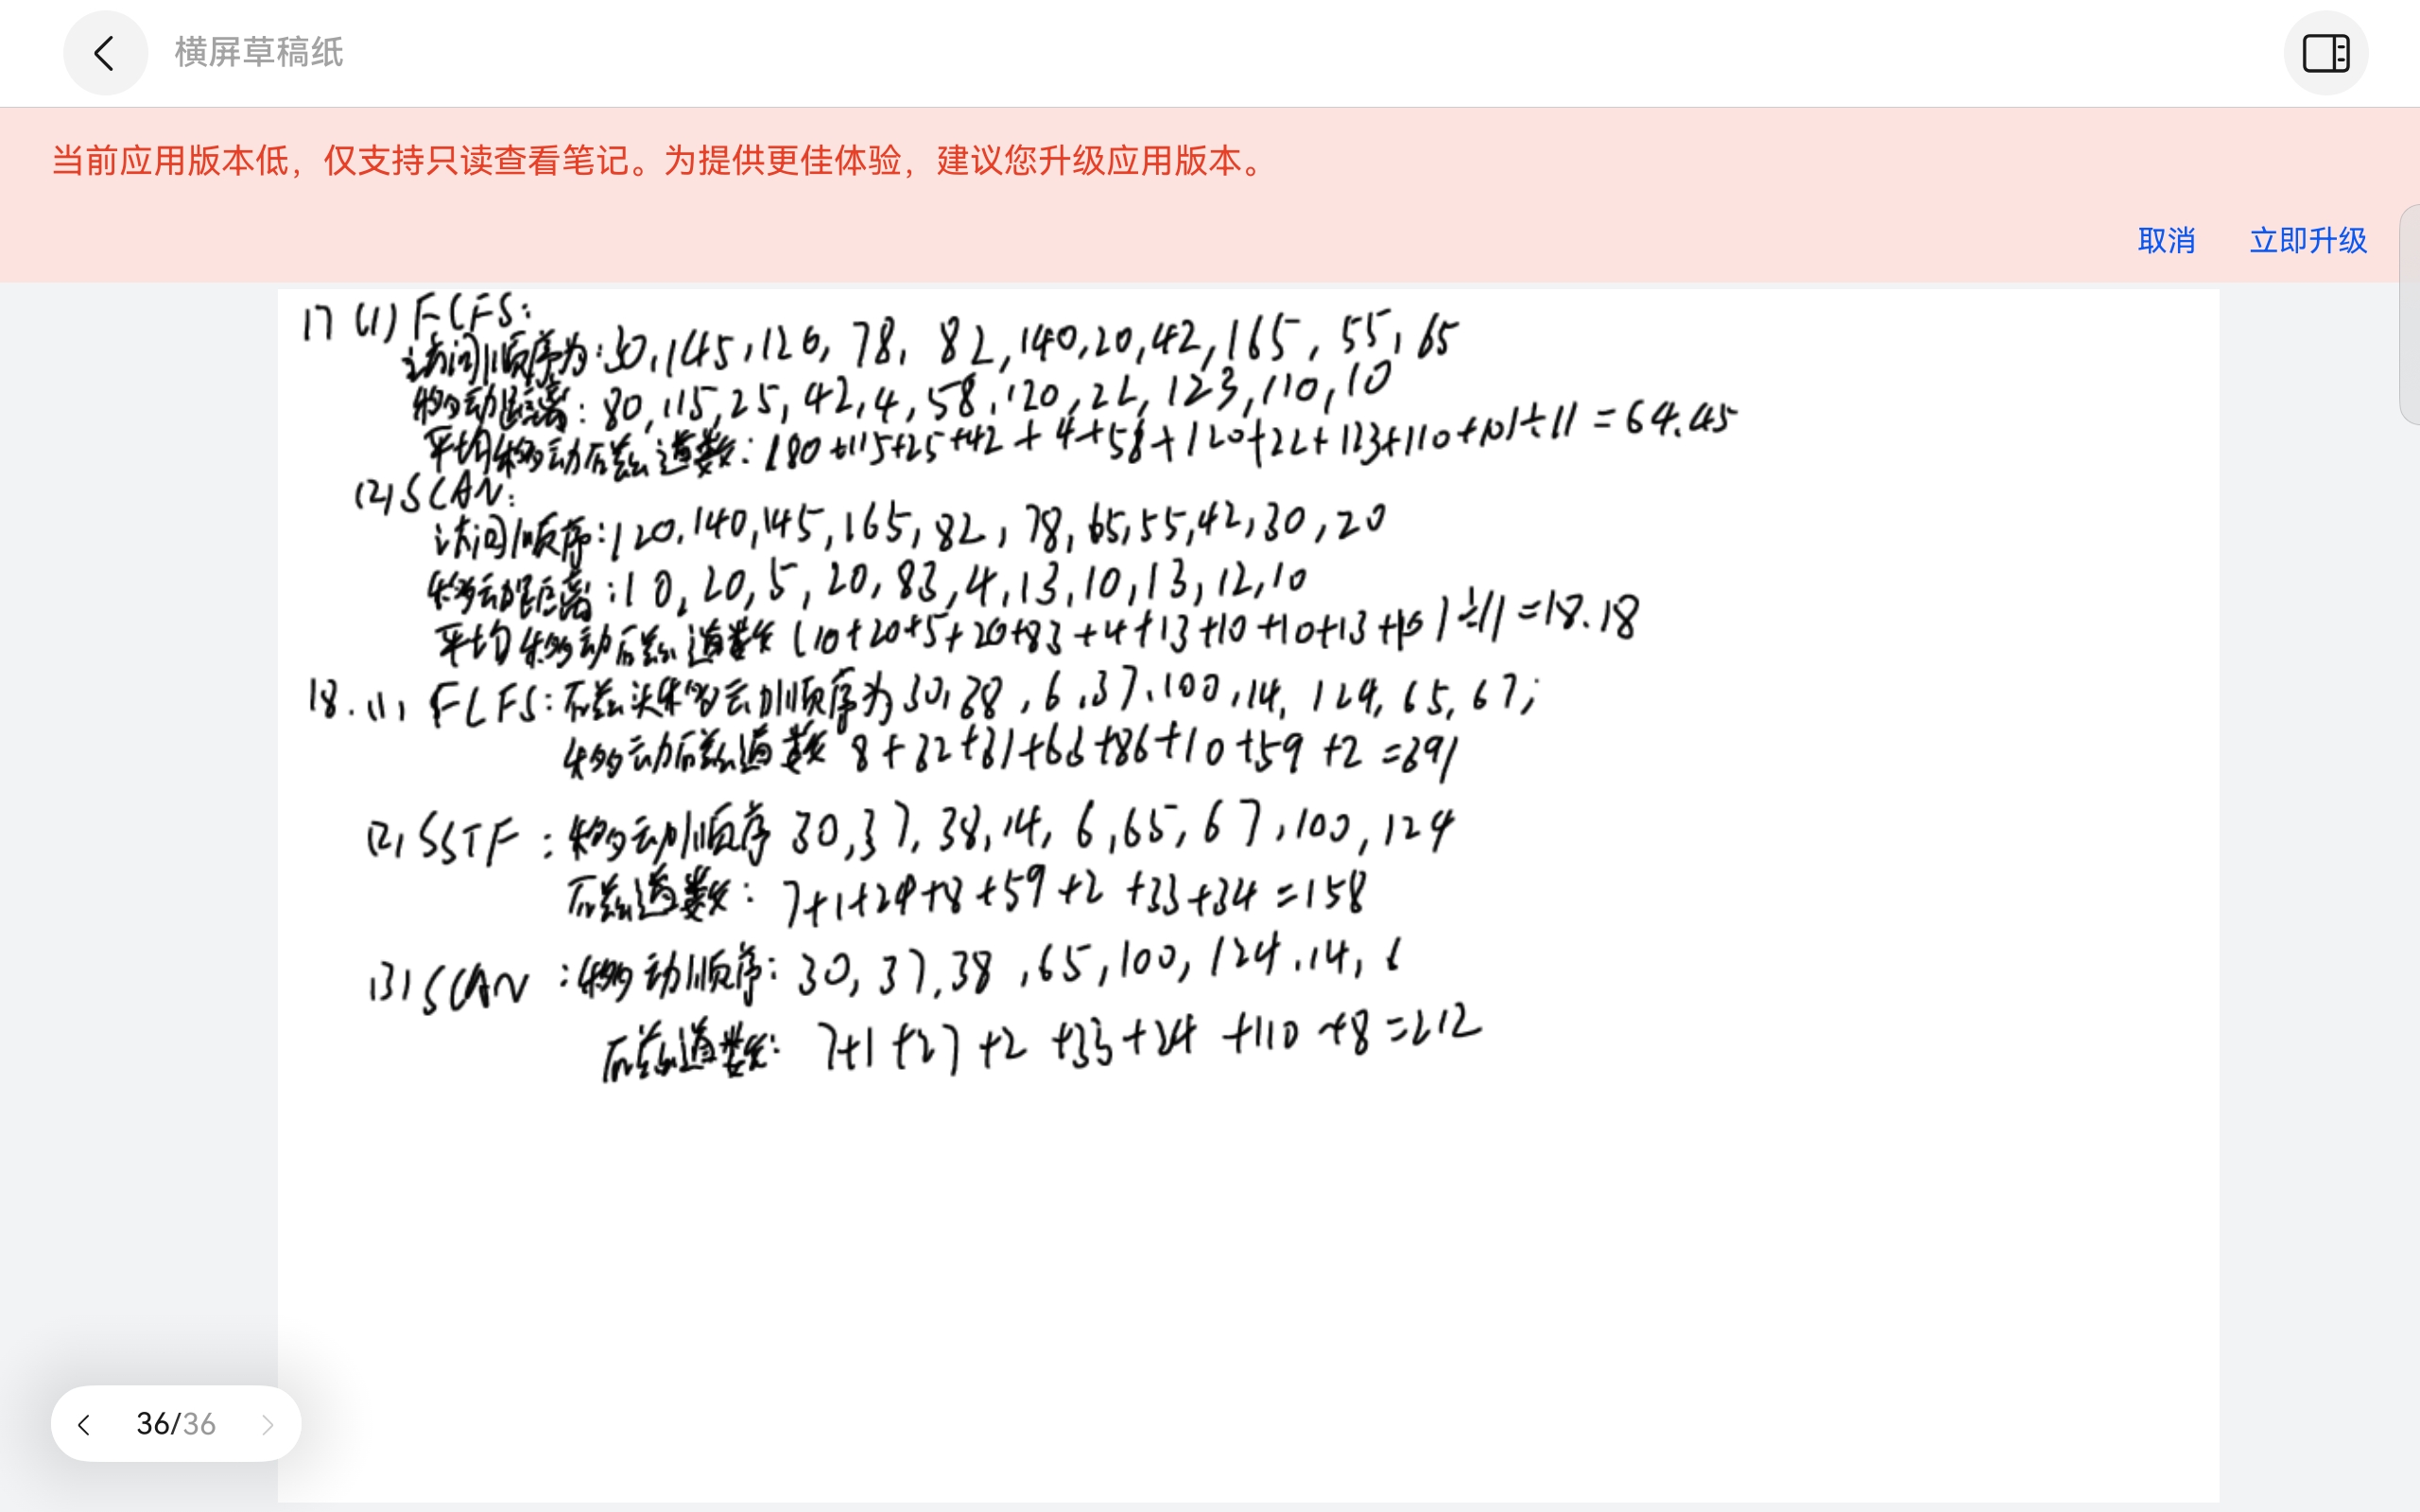 横屏草稿纸
当前应用版本低，仅支持只读查看笔记。为提供更佳体验，建议您升级应用版本。
取消 立即升级
17 (1) FCFS:
访问顺序为:30,145,120,78,82,140,20,42,165,55,65
移动距离:80,115,25,42,4,58,120,22,123,110,10
平均移动磁道数:(80+115+25+42+4+58+120+22+123+110+10)÷11=64.45
(2)SCAN:
访问顺序:120,140,145,165,82,78,65,55,42,30,20
移动距离:10,20,5,20,83,4,13,10,13,12,10
平均移动磁道数(10+20+5+20+83+4+13+10+10+13+10)÷11=18.18
18.(1) FCFS:磁头移动顺序为30,38,6,37,100,14,124,65,67;
移动磁道数 8+32+31+63+86+10+59+2=391
(2)SSTF:移动顺序 30,37,38,14,6,65,67,100,124
磁道数:7+1+24+8+59+2+33+34=158
(3)SCAN:移动顺序:30,37,38,65,100,124,14,6
磁道数:7+1+27+2+33+24+110+8=212
36/36